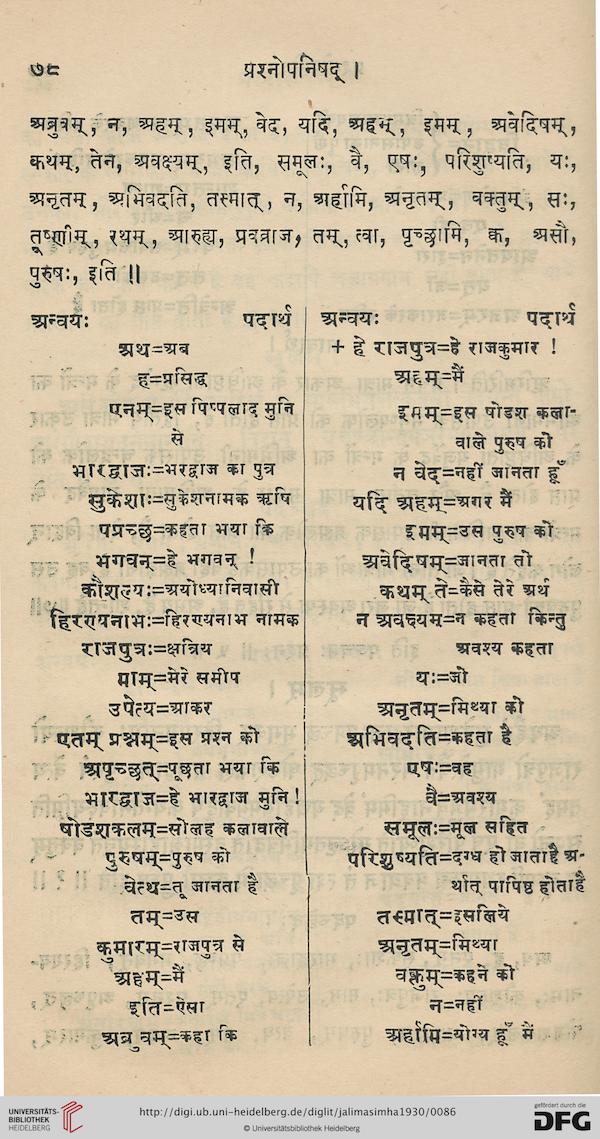 ७८
प्रश्नोपनिषद् ।
अब्रुवम्, न, अहम्, इमम्, वेद, यदि, अहम्, इमम्, अवेदिषम्,
कथम्, तेन, अवक्ष्यम्, इति, समूलः, वै, एषः, परिशुष्यति, यः,
अनृतम्, अभिवदति, तस्मात्, न, अर्हामि, अनृतम्, वक्तुम्, सः,
तूष्णीम्, रथम्, आरुह्य, प्रवव्राज, तम्, त्वा, पृच्छामि, क्व, असौ,
पुरुषः, इति ॥
अन्वयः पदार्थ
अथ=अब
ह=प्रसिद्ध
एनम्=इस पिप्पलाद मुनि
से
भारद्वाजः=भरद्वाज का पुत्र
सुकेशाः=सुकेशनामक ऋषि
पप्रच्छ=कहता भया कि
भगवन्=हे भगवन् !
कौशल्यः=अयोध्यानिवासी
हिरण्यनाभः=हिरण्यनाभ नामक
राजपुत्रः=क्षत्रिय
माम्=मेरे समीप
उपेत्य=आकर
एतम् प्रश्नम्=इस प्रश्न को
अपृच्छत्=पूछता भया कि
भारद्वाज=हे भारद्वाज मुनि !
षोडशकलम्=सोलह कलावाले
पुरुषम्=पुरुष को
वेत्थ=तू जानता है
तम्=उस
कुमारम्=राजपुत्र से
अहम्=मैं
इति=ऐसा
अब्रुवम्=कहा कि
अन्वयः पदार्थ
+ हे राजपुत्र=हे राजकुमार !
अहम्=मैं
इमम्=इस षोडश कला-
वाले पुरुष को
न वेद=नहीं जानता हूँ
यदि अहम्=अगर मैं
इमम्=उस पुरुष को
अवेदिषम्=जानता तो
कथम् ते=कैसे तेरे अर्थ
न अवक्ष्यम्=न कहता किन्तु
अवश्य कहता
यः=जो
अनृतम्=मिथ्या को
अभिवदति=कहता है
एषः=वह
वै=अवश्य
समूलः=मूल सहित
परिशुष्यति=दग्ध हो जाता है अ-
र्थात् पापिष्ठ होता है
तस्मात्=इसलिये
अनृतम्=मिथ्या
वक्तुम्=कहने को
न=नहीं
अर्हामि=योग्य हूँ मैं
UNIVERSITÄTS-
BIBLIOTHEK
HEIDELBERG
http://digi.ub.uni-heidelberg.de/diglit/jalimasimha1930/0086
© Universitätsbibliothek Heidelberg
gefördert durch die
DFG